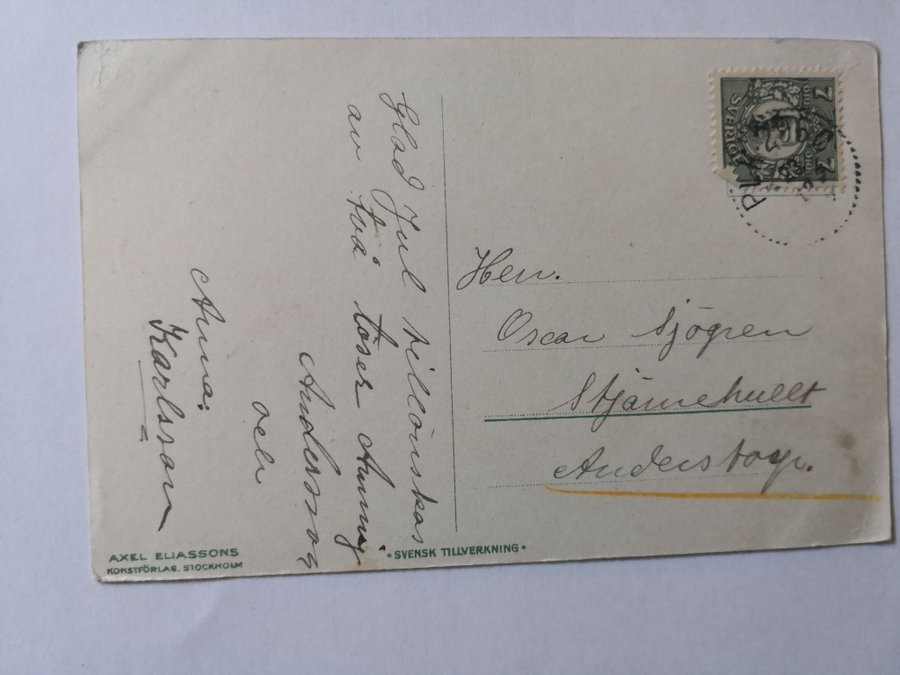 Glad Jul tillönskas
av två töser Anny
Andersson
och
Anna:
Karlsson
7
SVERIGE
7
Herr.
Oscar Sjögren
Stjärnehullt
Anderstorp.
AXEL ELIASSONS
KONSTFÖRLAG. STOCKHOLM
• SVENSK TILLVERKNING •